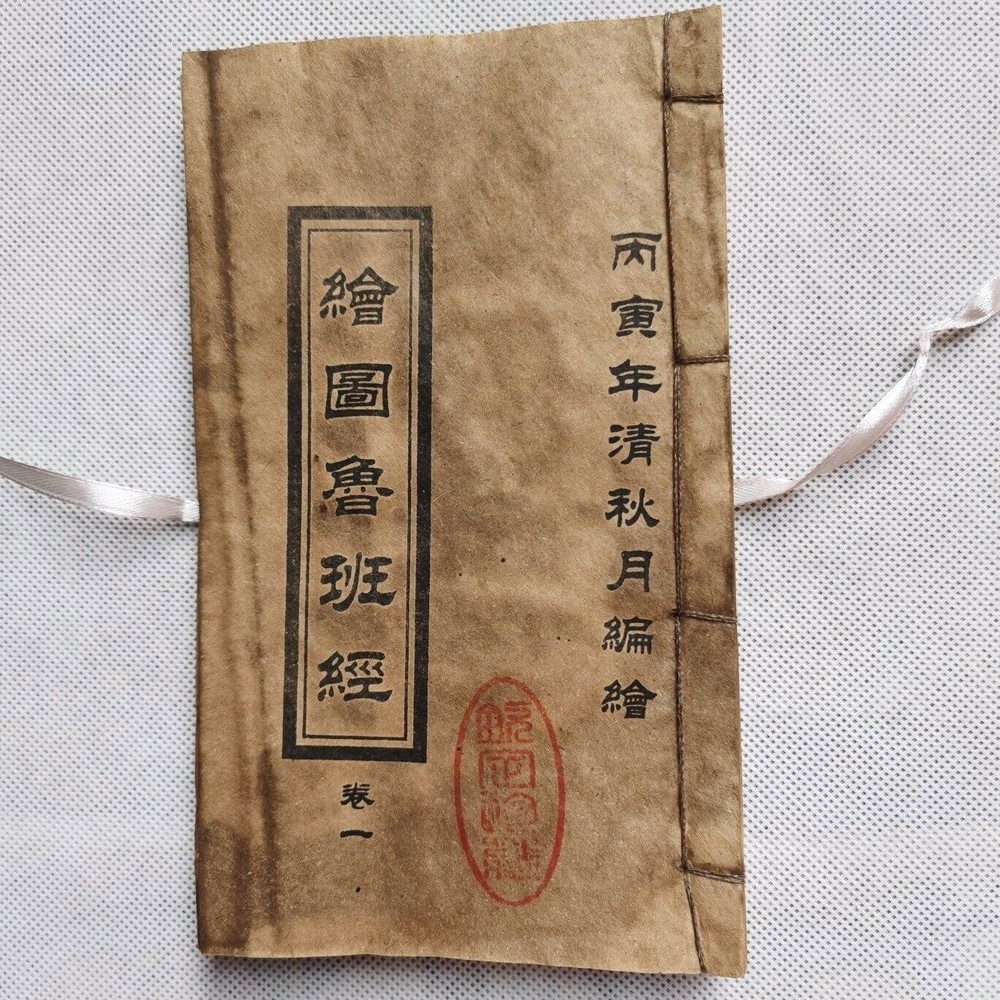 丙寅年清秋月編繪
繪圖魯班經
卷一